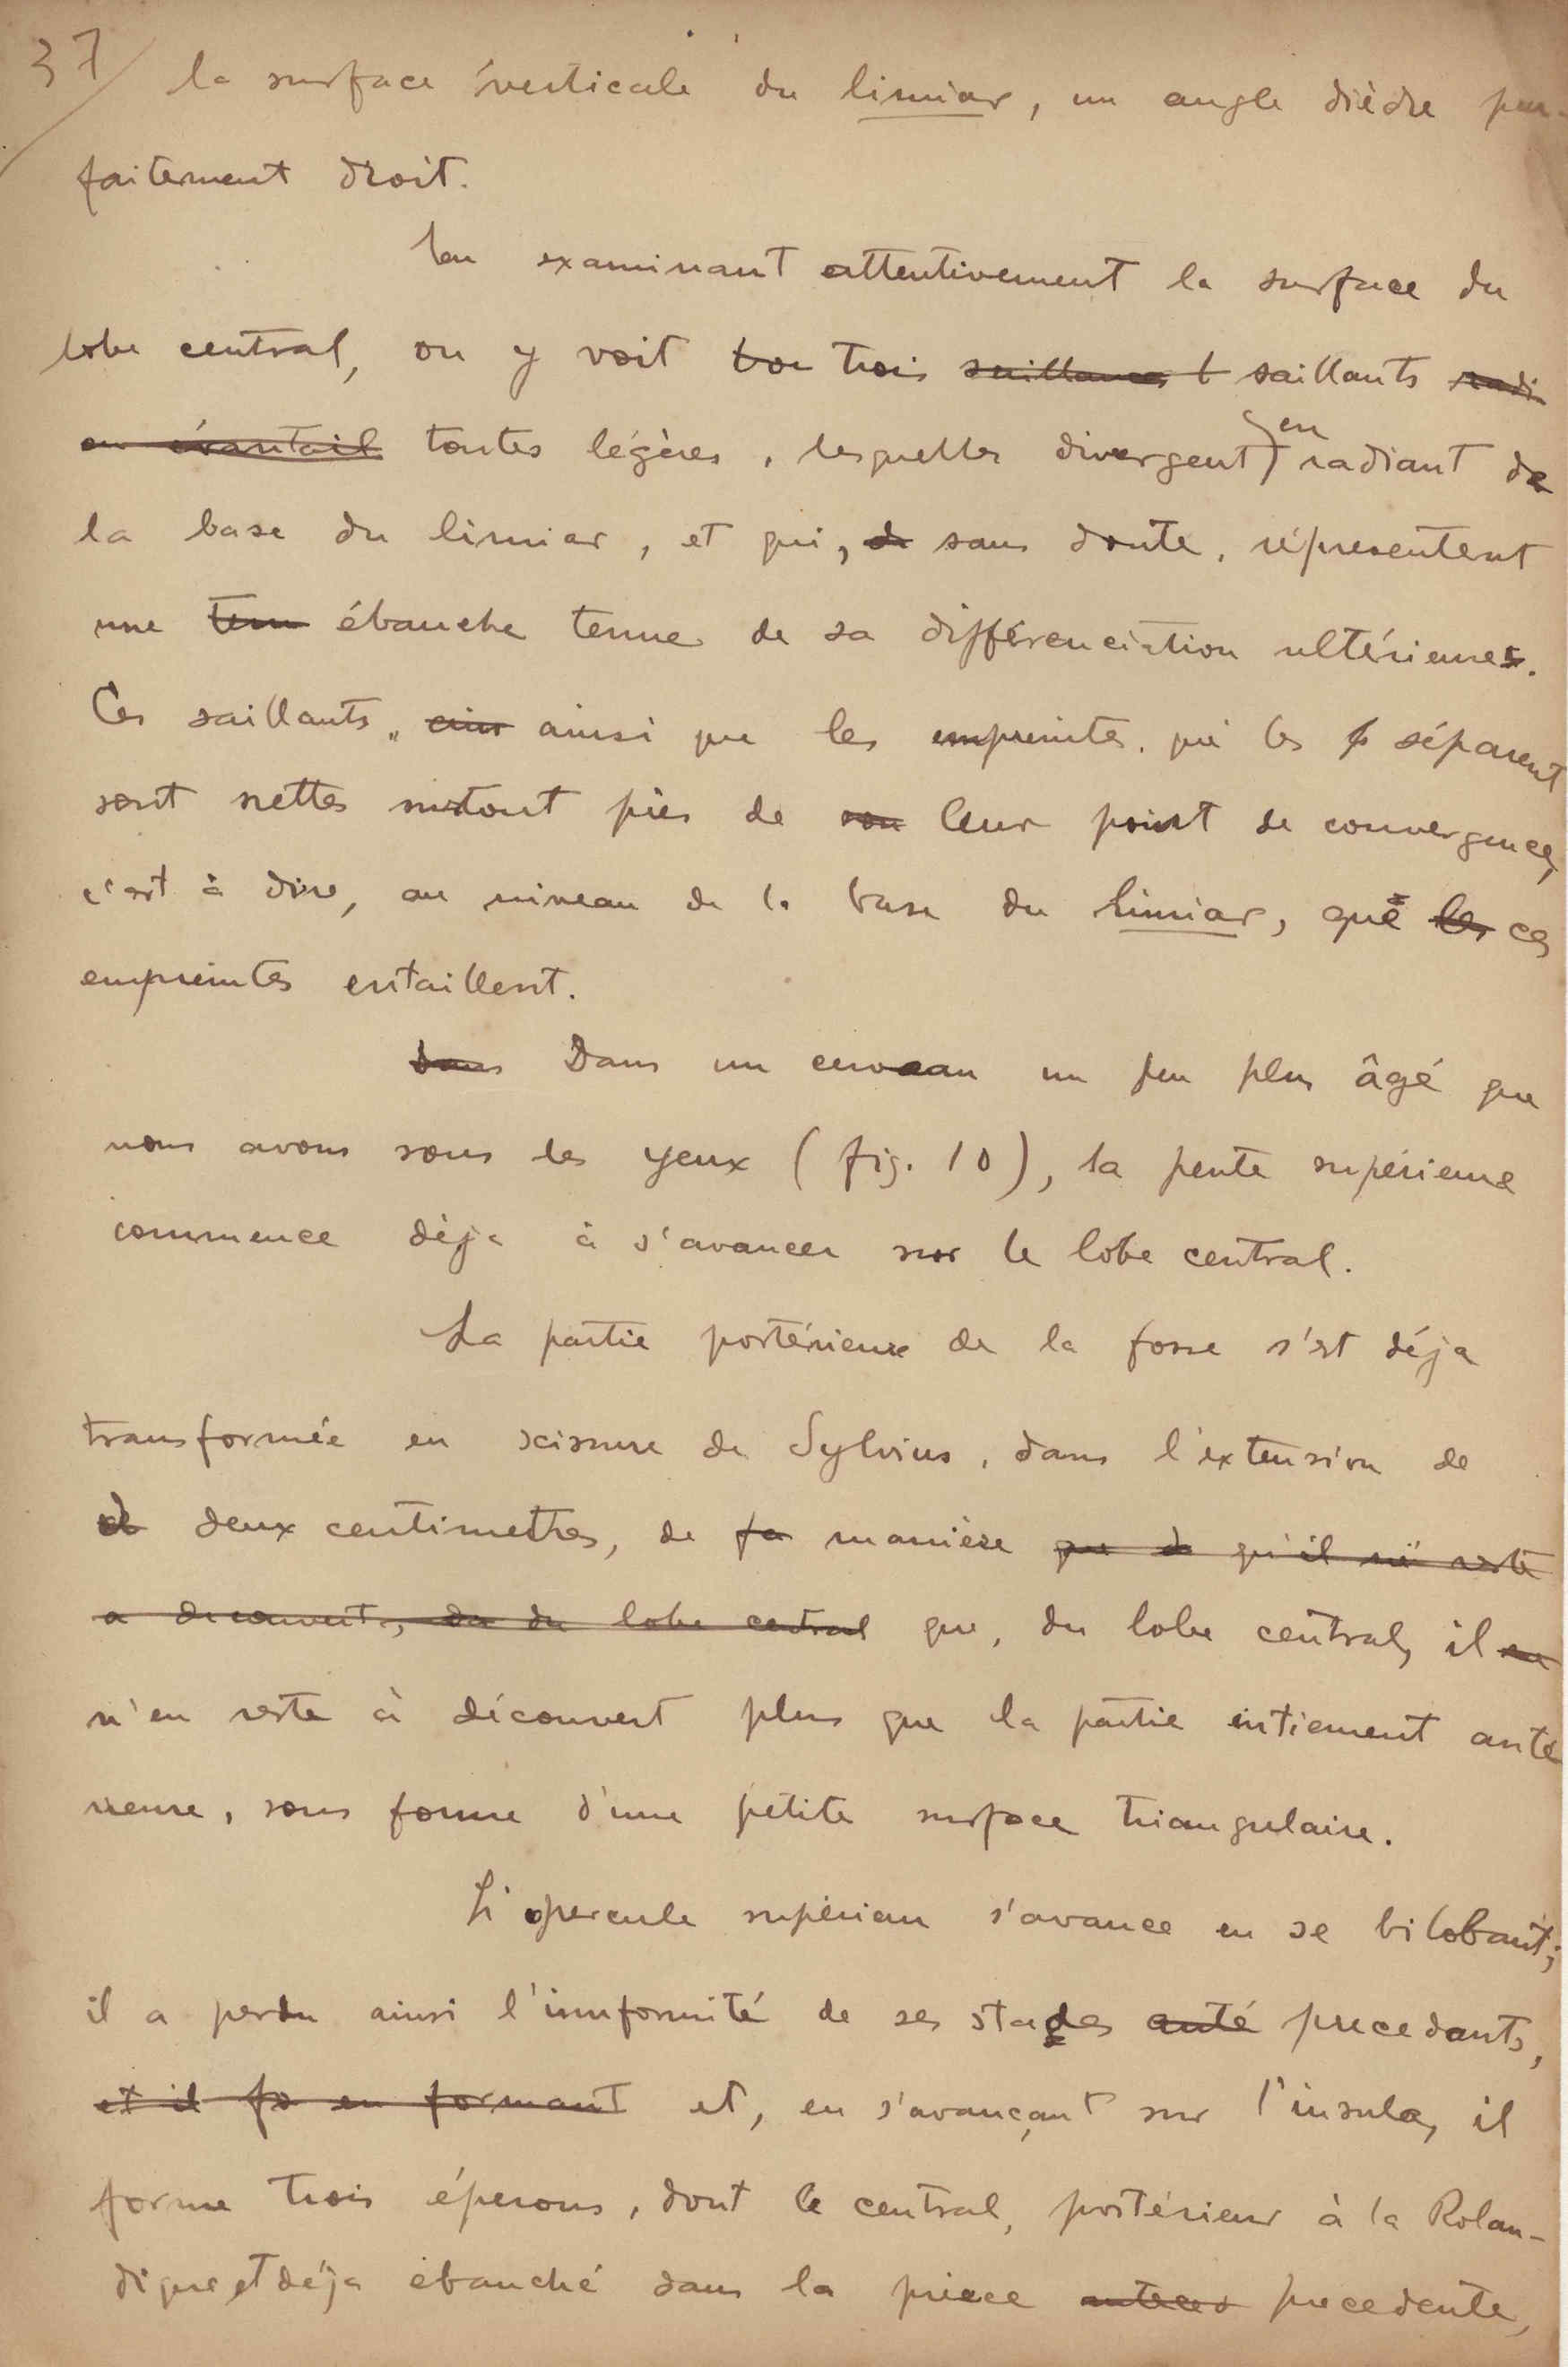 37/ la surface verticale du limiar, un angle dièdre par-
faitement droit.
En examinant attentivement la surface du
lobe central, on y voit trois saillants
toutes légères, lesquelles divergent en radiant de
la base du limiar, et qui, sans doute, représentent
une ébauche tenue de sa différenciation ultérieure.
Ces saillants, ainsi que les empreintes qui les séparent
sont nettes surtout près de leur point de convergence,
c'est à dire, au niveau de la base du limiar, que ces
empreintes entaillent.
Dans un cerveau un peu plus âgé que
nous avons sous les yeux (fig. 10), la pente supérieure
commence dèja à s'avancer sur le lobe central.
La partie postérieure de la fosse s'est déja
transformée en scissure de Sylvius, dans l'extension de
deux centimetres, de manière
que, du lobe central, il
n'en reste à découvert plus que la partie entierement anté
rieure, sous forme d'une petite surface triangulaire.
L'opercule supérieur s'avance en se bilobant;
il a perdu ainsi l'inuformité de ses stades precedants,
et, en s'avançant sur l'insula, il
forme trois éperons, dont le central, postérieur à la Rolan-
dique et déja ébauché dans la pièce precedente,